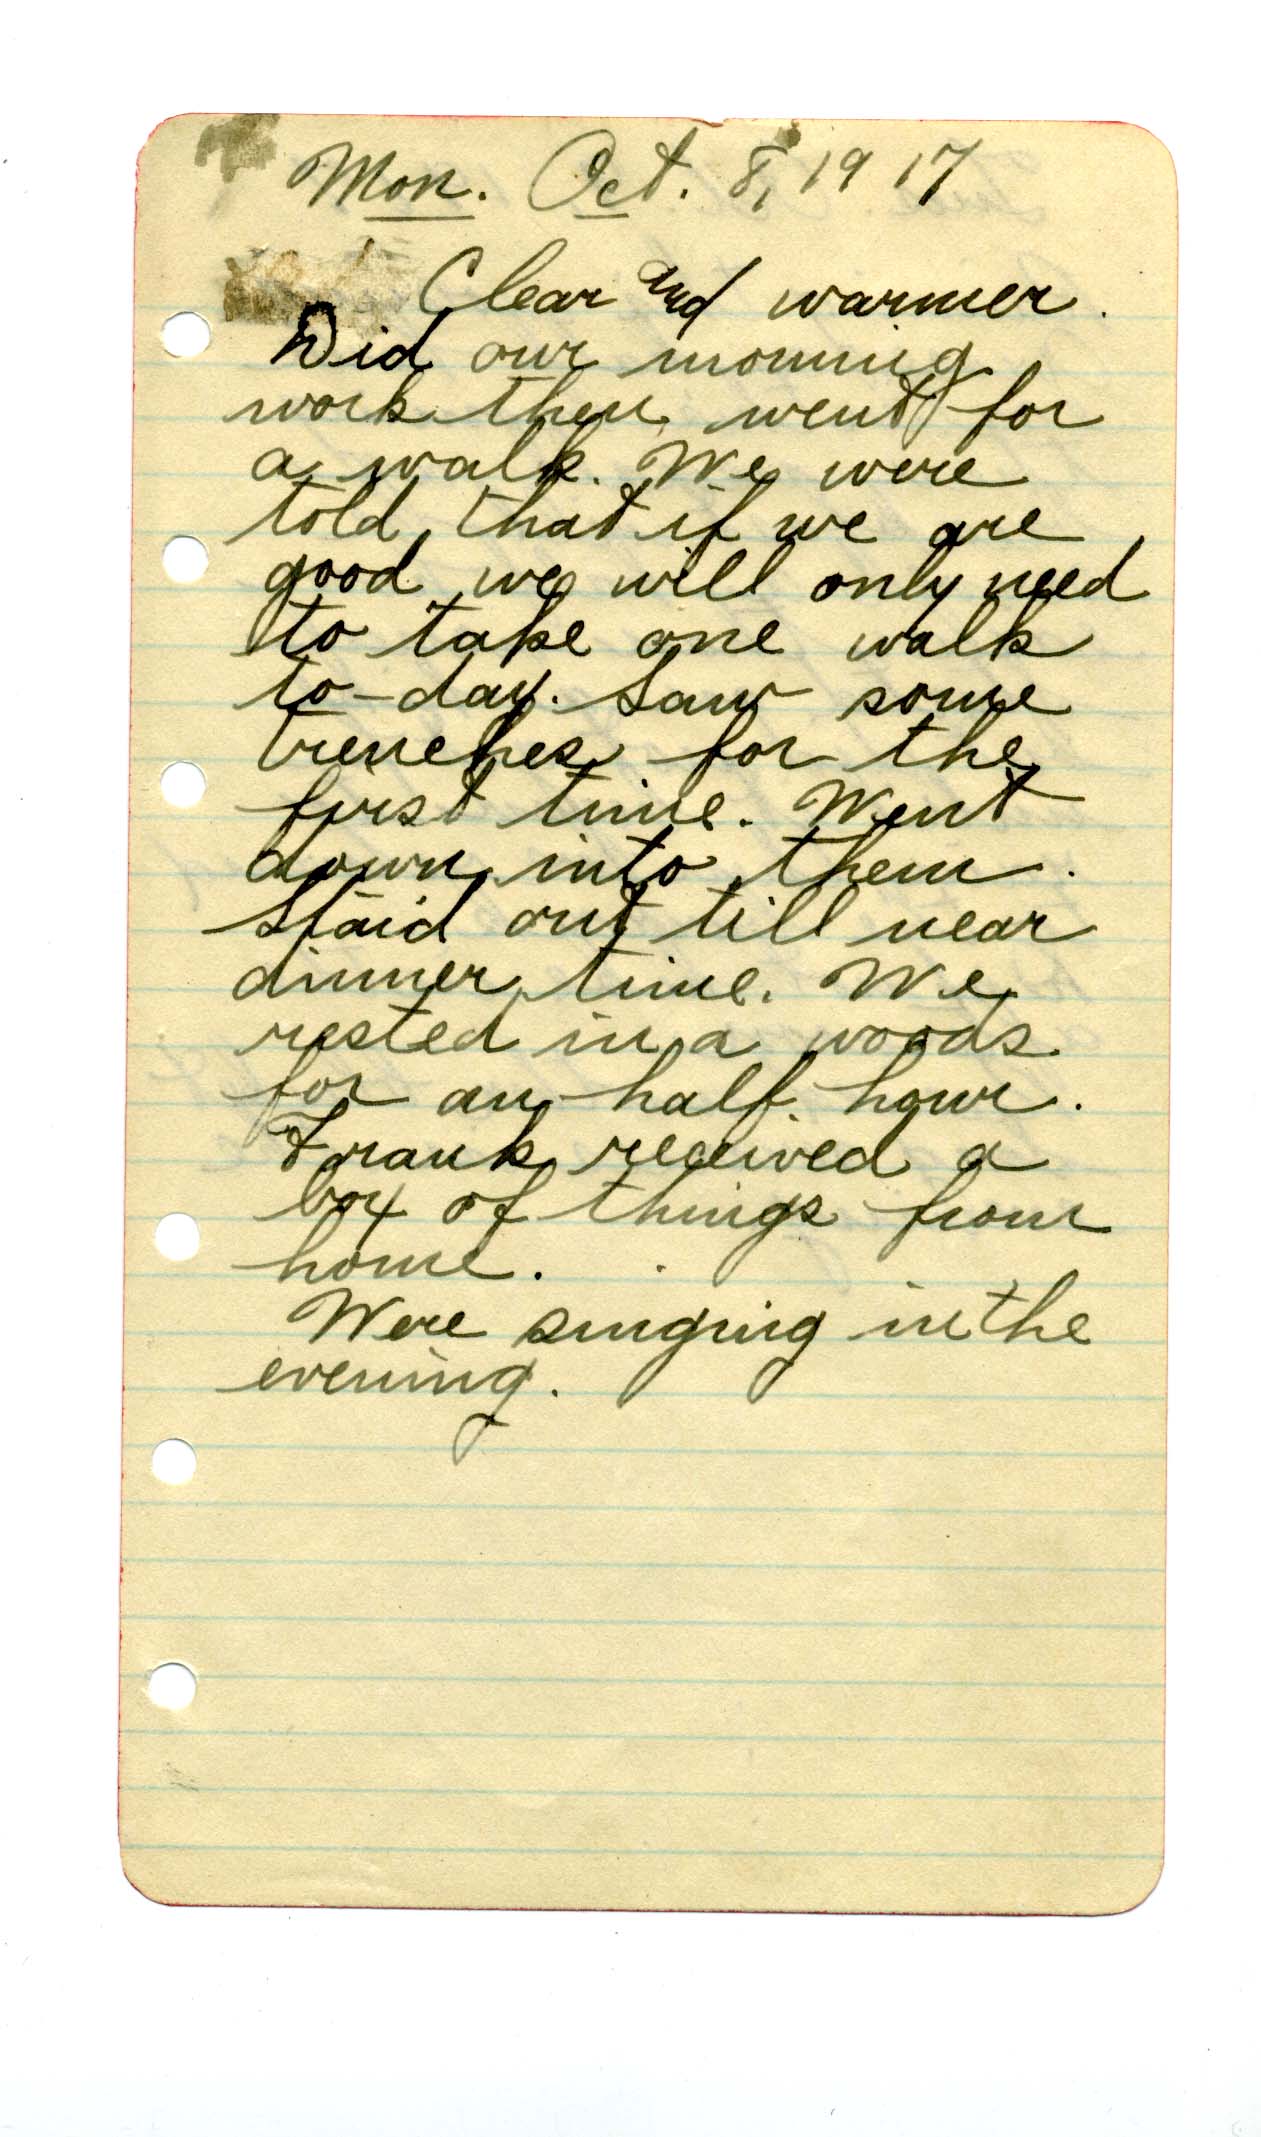 Mon. Oct. 8, 1917
Clear and warmer.
Did our morning
work then went for
a walk. We were
told that if we are
good we will only need
to take one walk
to-day. Saw some
trenches for the
first time. Went
down into them.
Staid out till near
dinner time. We
rested in a woods
for an half hour.
Frank received a
box of things from
home.
Were singing in the
evening.